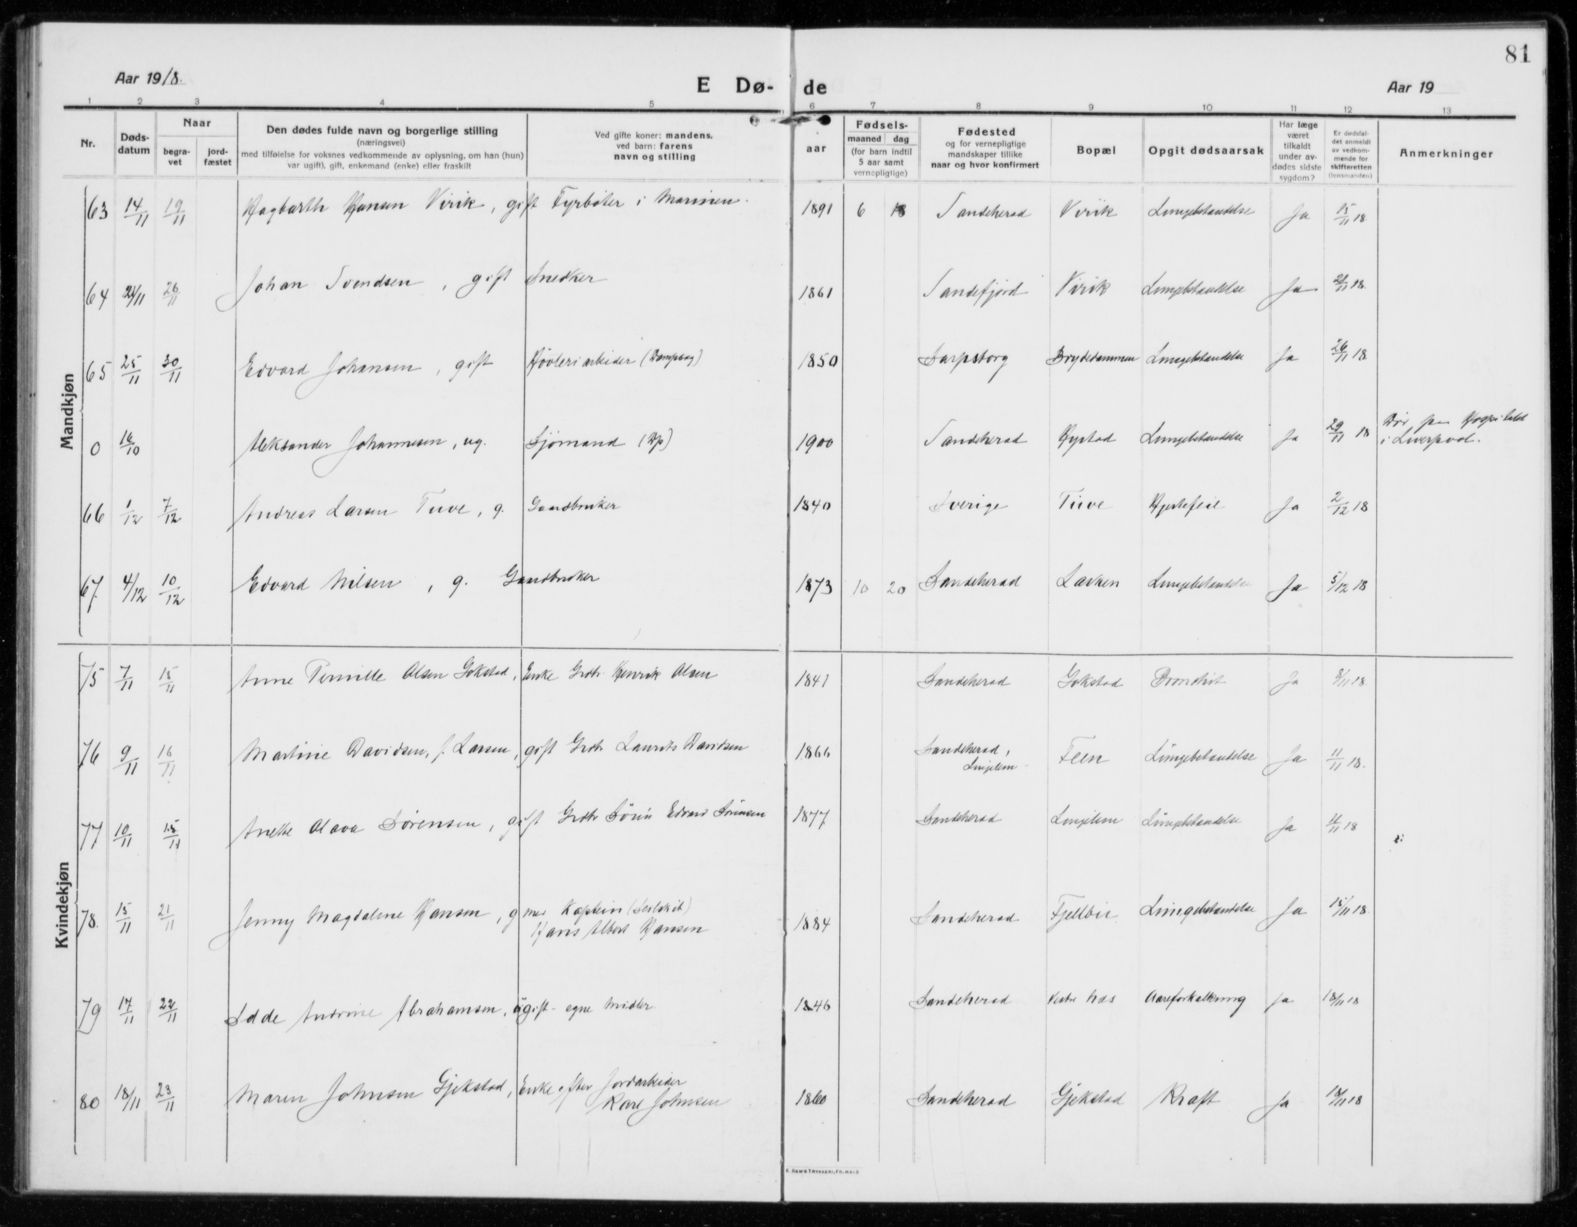 81
Aar 1918.
E Dø- de
Aar 19
1 2 3 4 5 6 7 8 9 10 11 12 13
Nr.
Døds-
datum
Naar
begra-
vet
jord-
fæstet
Den dødes fulde navn og borgerlige stilling
(næringsvei)
med tilføielse for voksnes vedkommende av oplysning, om han (hun)
var ugift, gift, enkemand (enke) eller fraskilt
Ved gifte koner: mandens,
ved barn: farens
navn og stilling
Fødsels-
aar
maaned dag
(for barn indtil
5 aar samt
vernepligtige)
Fødested
og for vernepligtige
mandskaper tillike
naar og hvor konfirmert
Bopæl
Opgit dødsaarsak
Har læge
været
tilkaldt
under av-
dødes sidste
sygdom?
Er dødsfal-
det anmeldt
av vedkom-
mende for
skifteretten
(lensmanden)
Anmerkninger
Mandkjøn
63 14/11 19/11 Hagbarth Hansen Virik, gift Fyrbøter i Marinen. 1891 6 18 Sandeherad Virik Lungebetændelse Ja 15/11 18
64 24/11 26/11 Johan Svendsen, gift Snedker 1861 Sandefjord Virik Lungebetændelse Ja 18.
65 25/11 30/11 Edvard Johansen, gift Høvleriarbeider (Dampsag) 1850 Sarpsborg Brydedammen Lungebetændelse Ja 26/11 18
0 16/10 Aleksander Johannesen, ug. Sjømand 1900 Sandeherad Nystad Lungebetændelse Ja 29/11 18 Død paa Hospital
i Liverpool.
66 1/12 7/12 Andreas Larsen Tuve, g. Gaardbruker 1840 Sverige Tuve Hjertefeil Ja 2/12 18
67 4/12 10/12 Edvard Nilsen, g. Gaardbruker 1873 10 20 Sandeherad Lasken Lungebetændelse Ja 5/12 18
Kvindekjøn
75 7/11 15/11 Anne Pernille Olsen Gokstad, Enke Grdbr. Henrik Olsen 1841 Sandeherad Gokstad Bronchit Ja 8/11 18
76 9/11 16/11 Martine Davidsen, f. Larsen, gift Grdbr Laurits Davidsen 1866 Sandeherad,
Lingelem Feen Lungebetændelse Ja 11/11 18.
77 10/11 15/11 Anette Olava Sørensen, gift Grdbr Sørin Edvard Sørensen 1877 Sandeherad Lingelem Lungebetændelse Ja 11/11 18
78. 15/11 21/11 Jenny Magdalene Hansen, g med Kaptein (Seilskib)
Hans Albert Hansen 1884 Sandeherad Fjellvik Lungebetændelse Ja 15/11 18.
79 17/11 22/11 Edde Andrine Abrahamsen, ugift - egne midler 1846 Sandeherad Vestre Næs Aareforkalkning ja 18/11 18
80 18/11 23/11 Maren Johnsen Gjekstad, Enke efter Jordarbeider
Karl Johnsen 1860 Sandeherad Gjekstad Kræft Ja 18